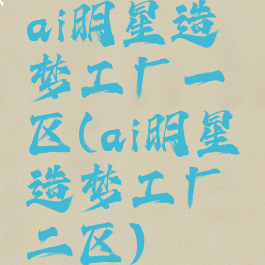 ai明星造
梦工厂一
区(ai明星
造梦工厂
二区)